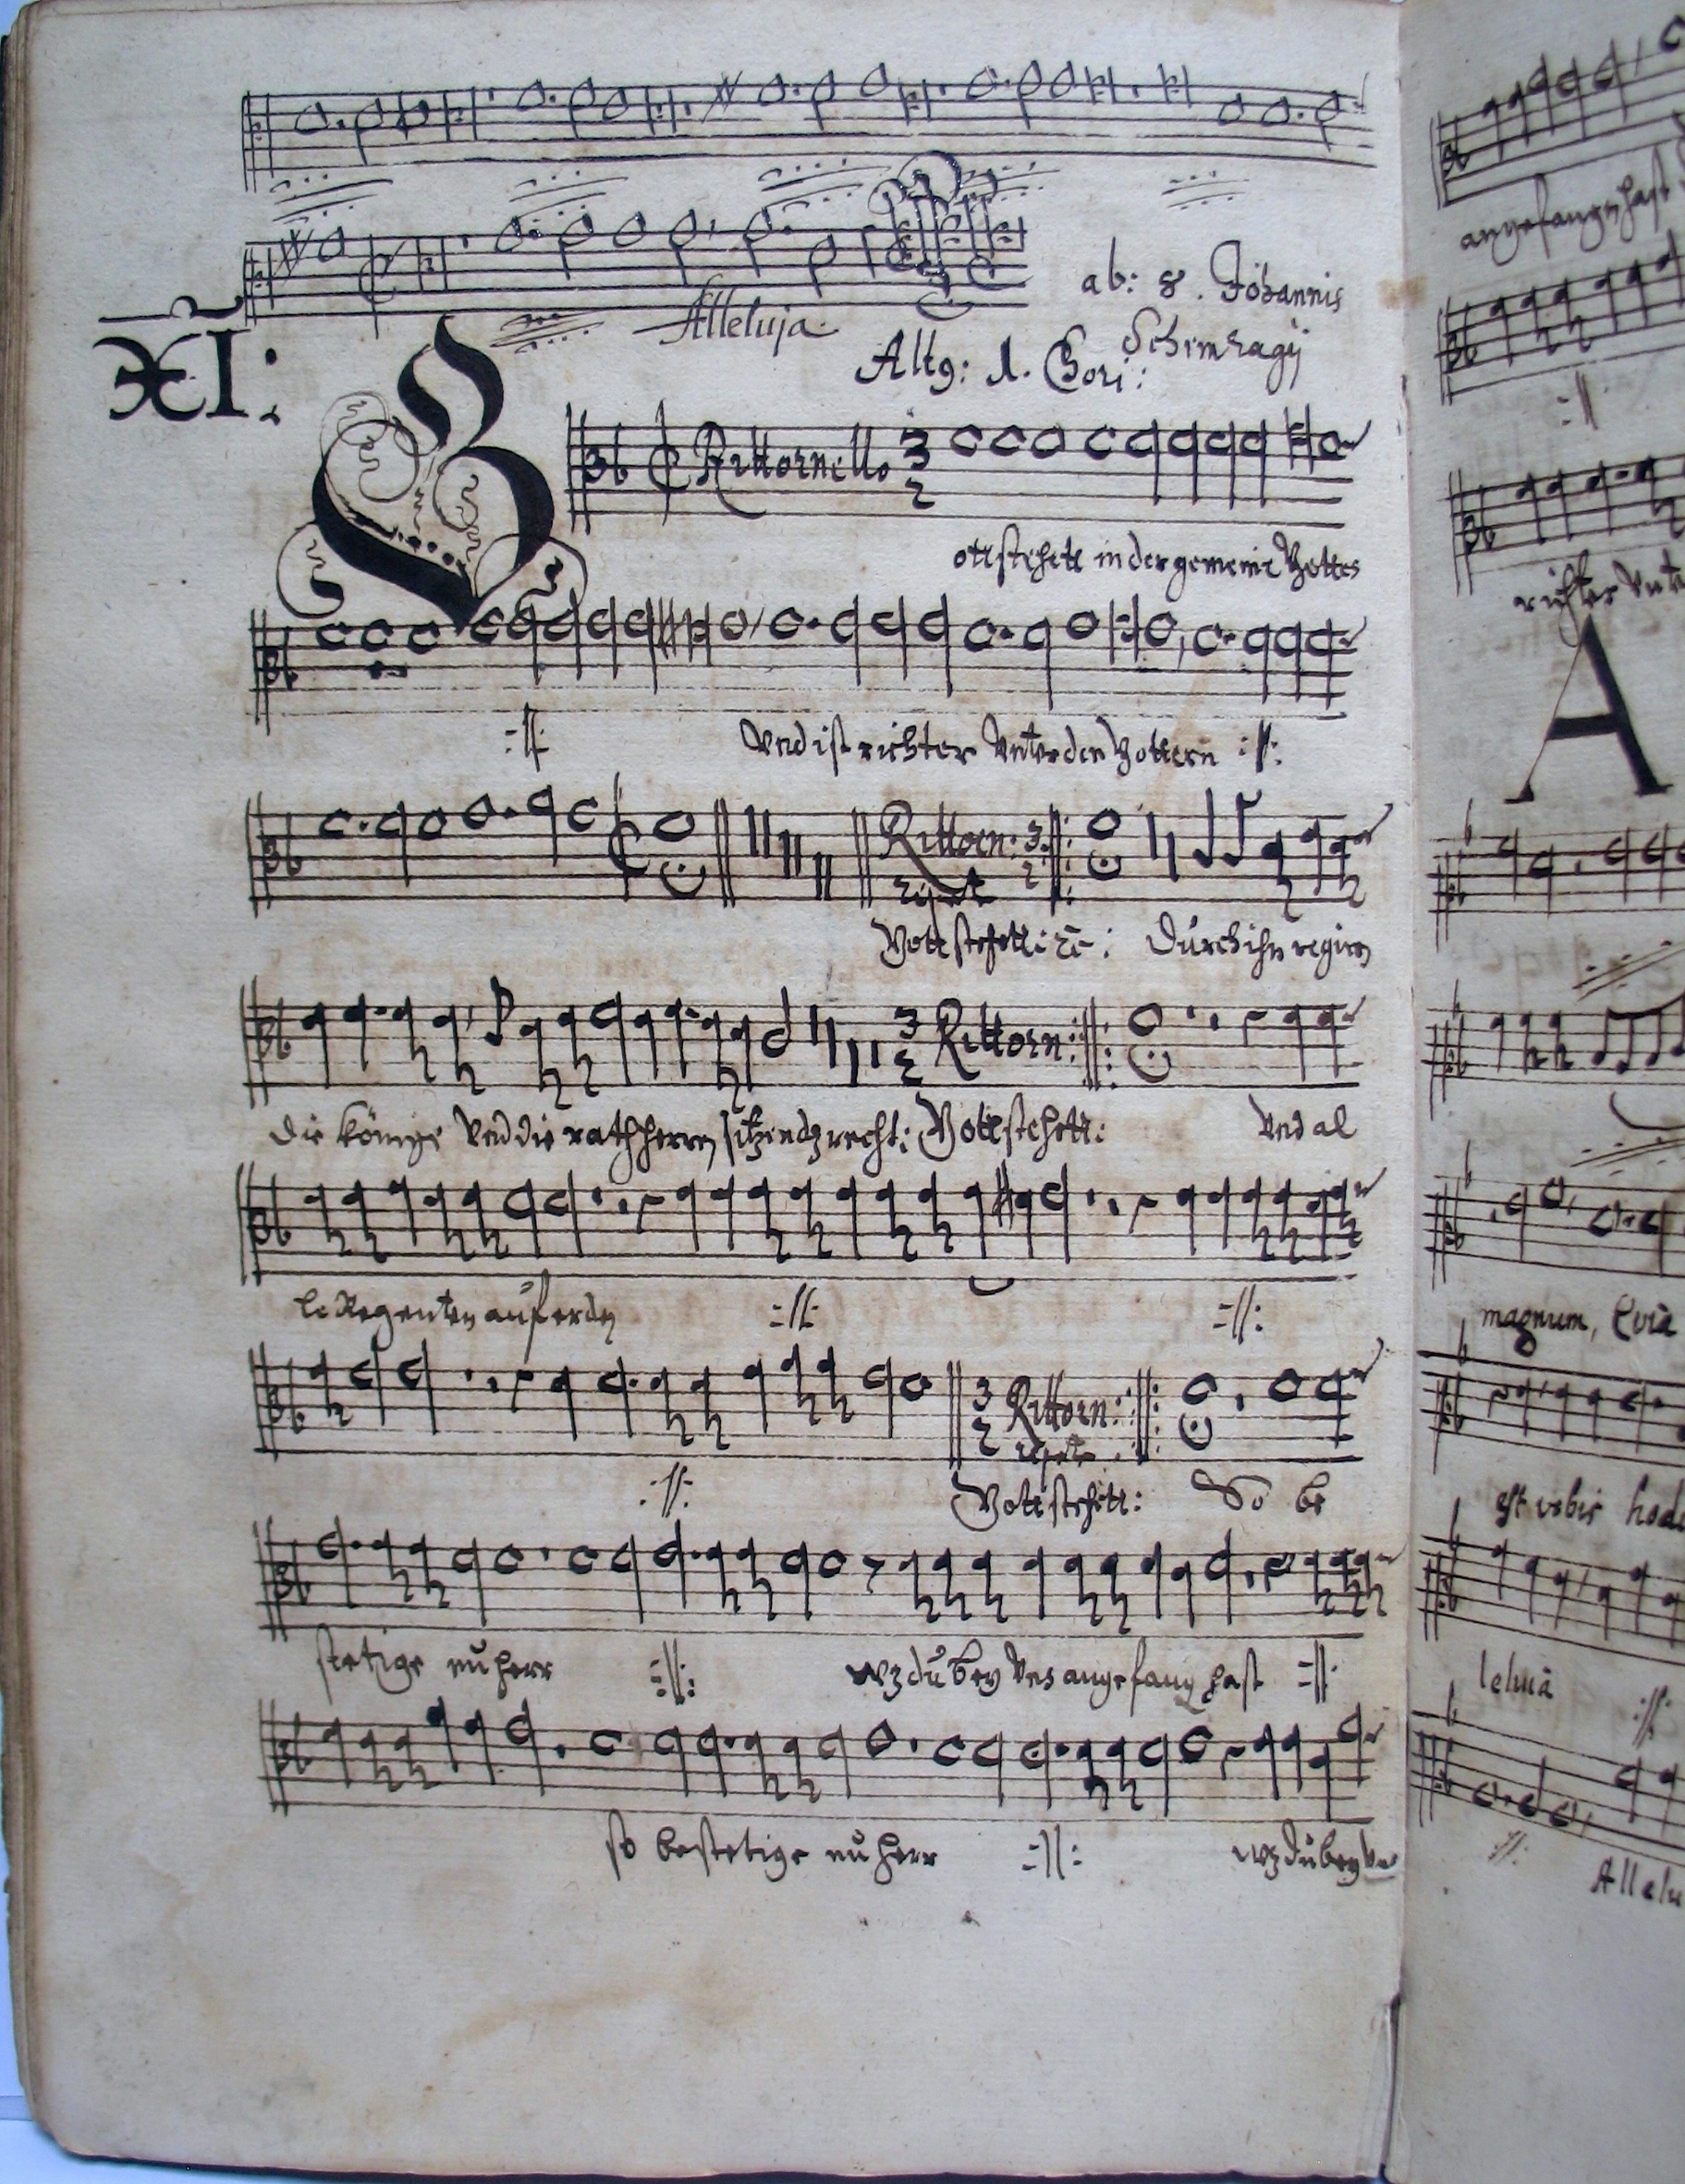 ab: 8. Johannis
Alleluja.
Schimragÿ
XI:
Altꝯ: 1. Chori:
Rittornello 3 2
Gott stehett in der gemeine Gottes
:||: Vnd ist richter Vnter den Gottern :||:
Rittorn: 3 2
repet
Gott stehett: ꝛc: Durch ihn regirn
3 2 Rittorn:
die könige Vnd die rathherrn sitzendz recht: Gott stehett: Vnd al
le Regenten auf erdn :||: :||:
3 2 Rittorn:
repet
:||: Gott stehett: So be
stetige nu herr :||: wz du bey Vns angefang hast :||:
so bestetige nu herr :||: wz du bey Vn
angefangn hast
:||
richter Vnte
A
magnum, Evia
est vobis hod
leluia :||:
:||:
Allelu